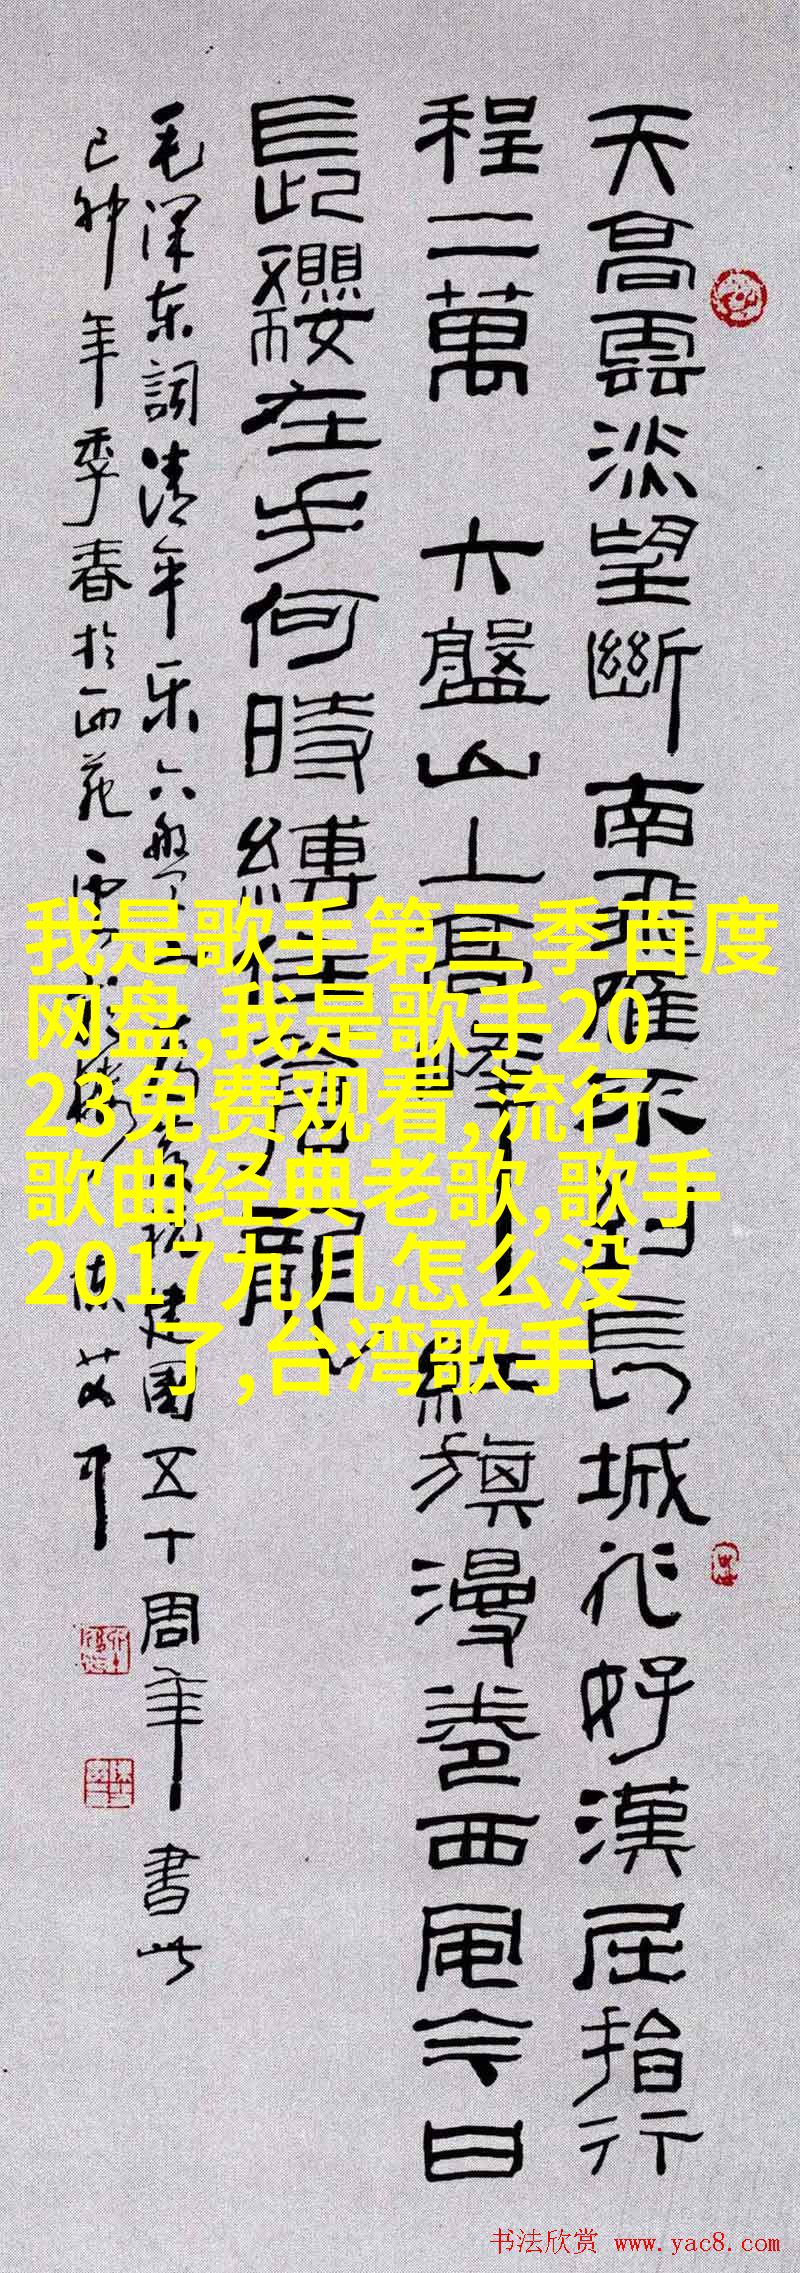 天高雲淡望斷南飛雁不到長城非好漢屈指行
程二萬 六盤山上高峰 紅旗漫卷西風今日
長纓在手何時縛住蒼龍
毛澤东詞清平乐六盤山 建國五十周年書此
己卯年季春於西苑
我是歌手第三季百度
网盘,我是歌手20
23免费观看,流行
歌曲经典老歌,歌手
2017九儿怎么没
了,台湾歌手
书法欣赏 www.yac8.com